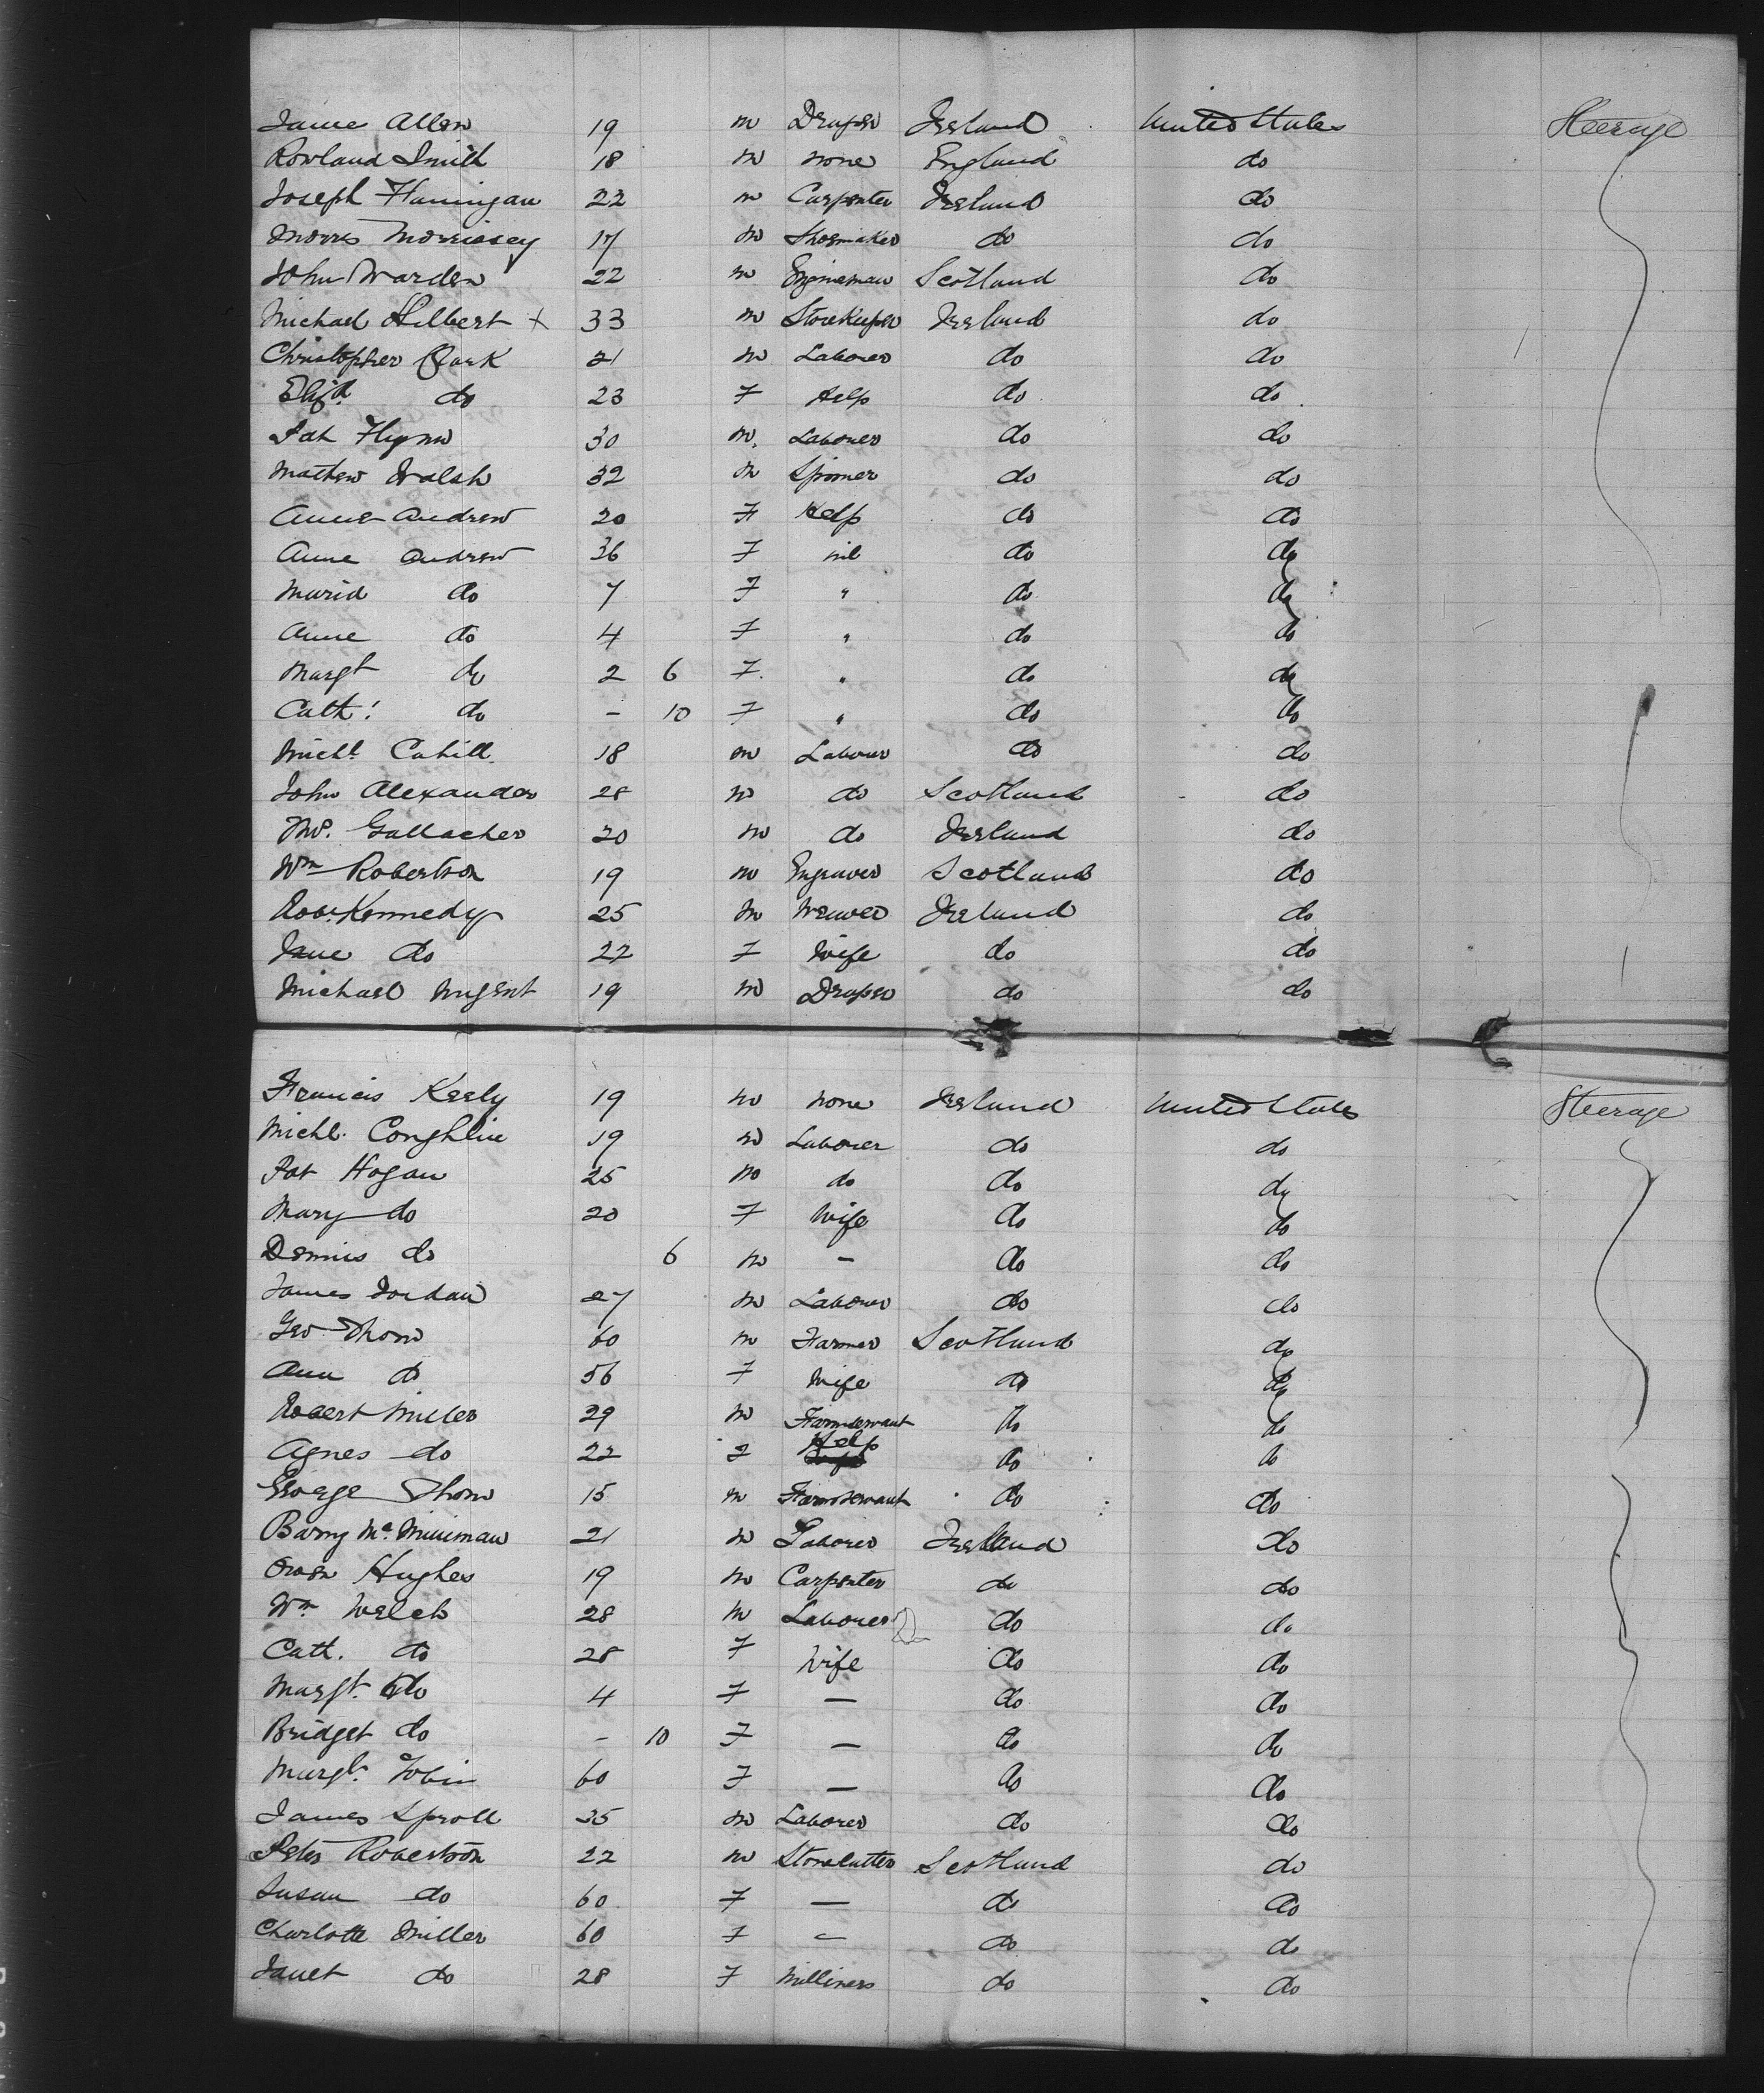 Jame Allen 19 m Draper Ireland United States Steerage
Rowland Smith 18 m none England do
Joseph Flanigan 22 m Carpenter Ireland do
Morris Morrissey 17 m Shoemaker do do
John Warden 22 m Engineman Scotland do
Michael Hilbert + 33 m Storekeeper Ireland do
Christopher Clark 21 m Laborer do do
Elizth do 23 F Help do do
Pat Flynn 30 m. Laborer do do
Mathew Walsh 32 m Spinner do do
Anne Andrew 20 F Help do do
Anne Andrew 36 F nil do do
Maria do 7 F " do do
Anne do 4 F " do do
Margt do 2 6 F " do do
Cath: do - 10 F " do do
Michl Cahill 18 m Labour do do
John Alexander 28 m do Scotland do
Thos. Gallacher 20 m do Ireland do
Wm Robertson 19 m Engraver Scotland do
Rob. Kennedy 25 m Weaver Ireland do
Jane do 22 F Wife do do
Michael Nugent 19 m Draper do do
Francis Keely 19 m none Ireland United States Steerage
Michl. Coughlin 19 m Laborer do do
Pat Hogan 25 m do do do
Mary do 20 F Wife do do
Dennis do 6 m - do do
James Jordan 27 m Laborer do do
Geo Thom 60 m Farmer Scotland do
Ann do 56 F Wife do do
Robert Miller 29 m Farmservant do do
Agnes do 22 F Help do do
George Thom 15 m Farmservant do do
Barny Mc. 21 m Laborer Ireland do
Owen Hughes 19 m Carpenter do do
Wm Welch 28 m Laborer do do
Cath. do 28 F Wife do do
Margt. do 4 F - do do
Bridget do - 10 F - do do
Margt. Tobin 60 F - do do
James Sproll 35 m Laborer do do
Peter Robertson 22 m Stonecutter Scotland do
Susan do 60 F - do do
Charlotte Miller 60 F - do do
Janet do 28 F Milliners do do